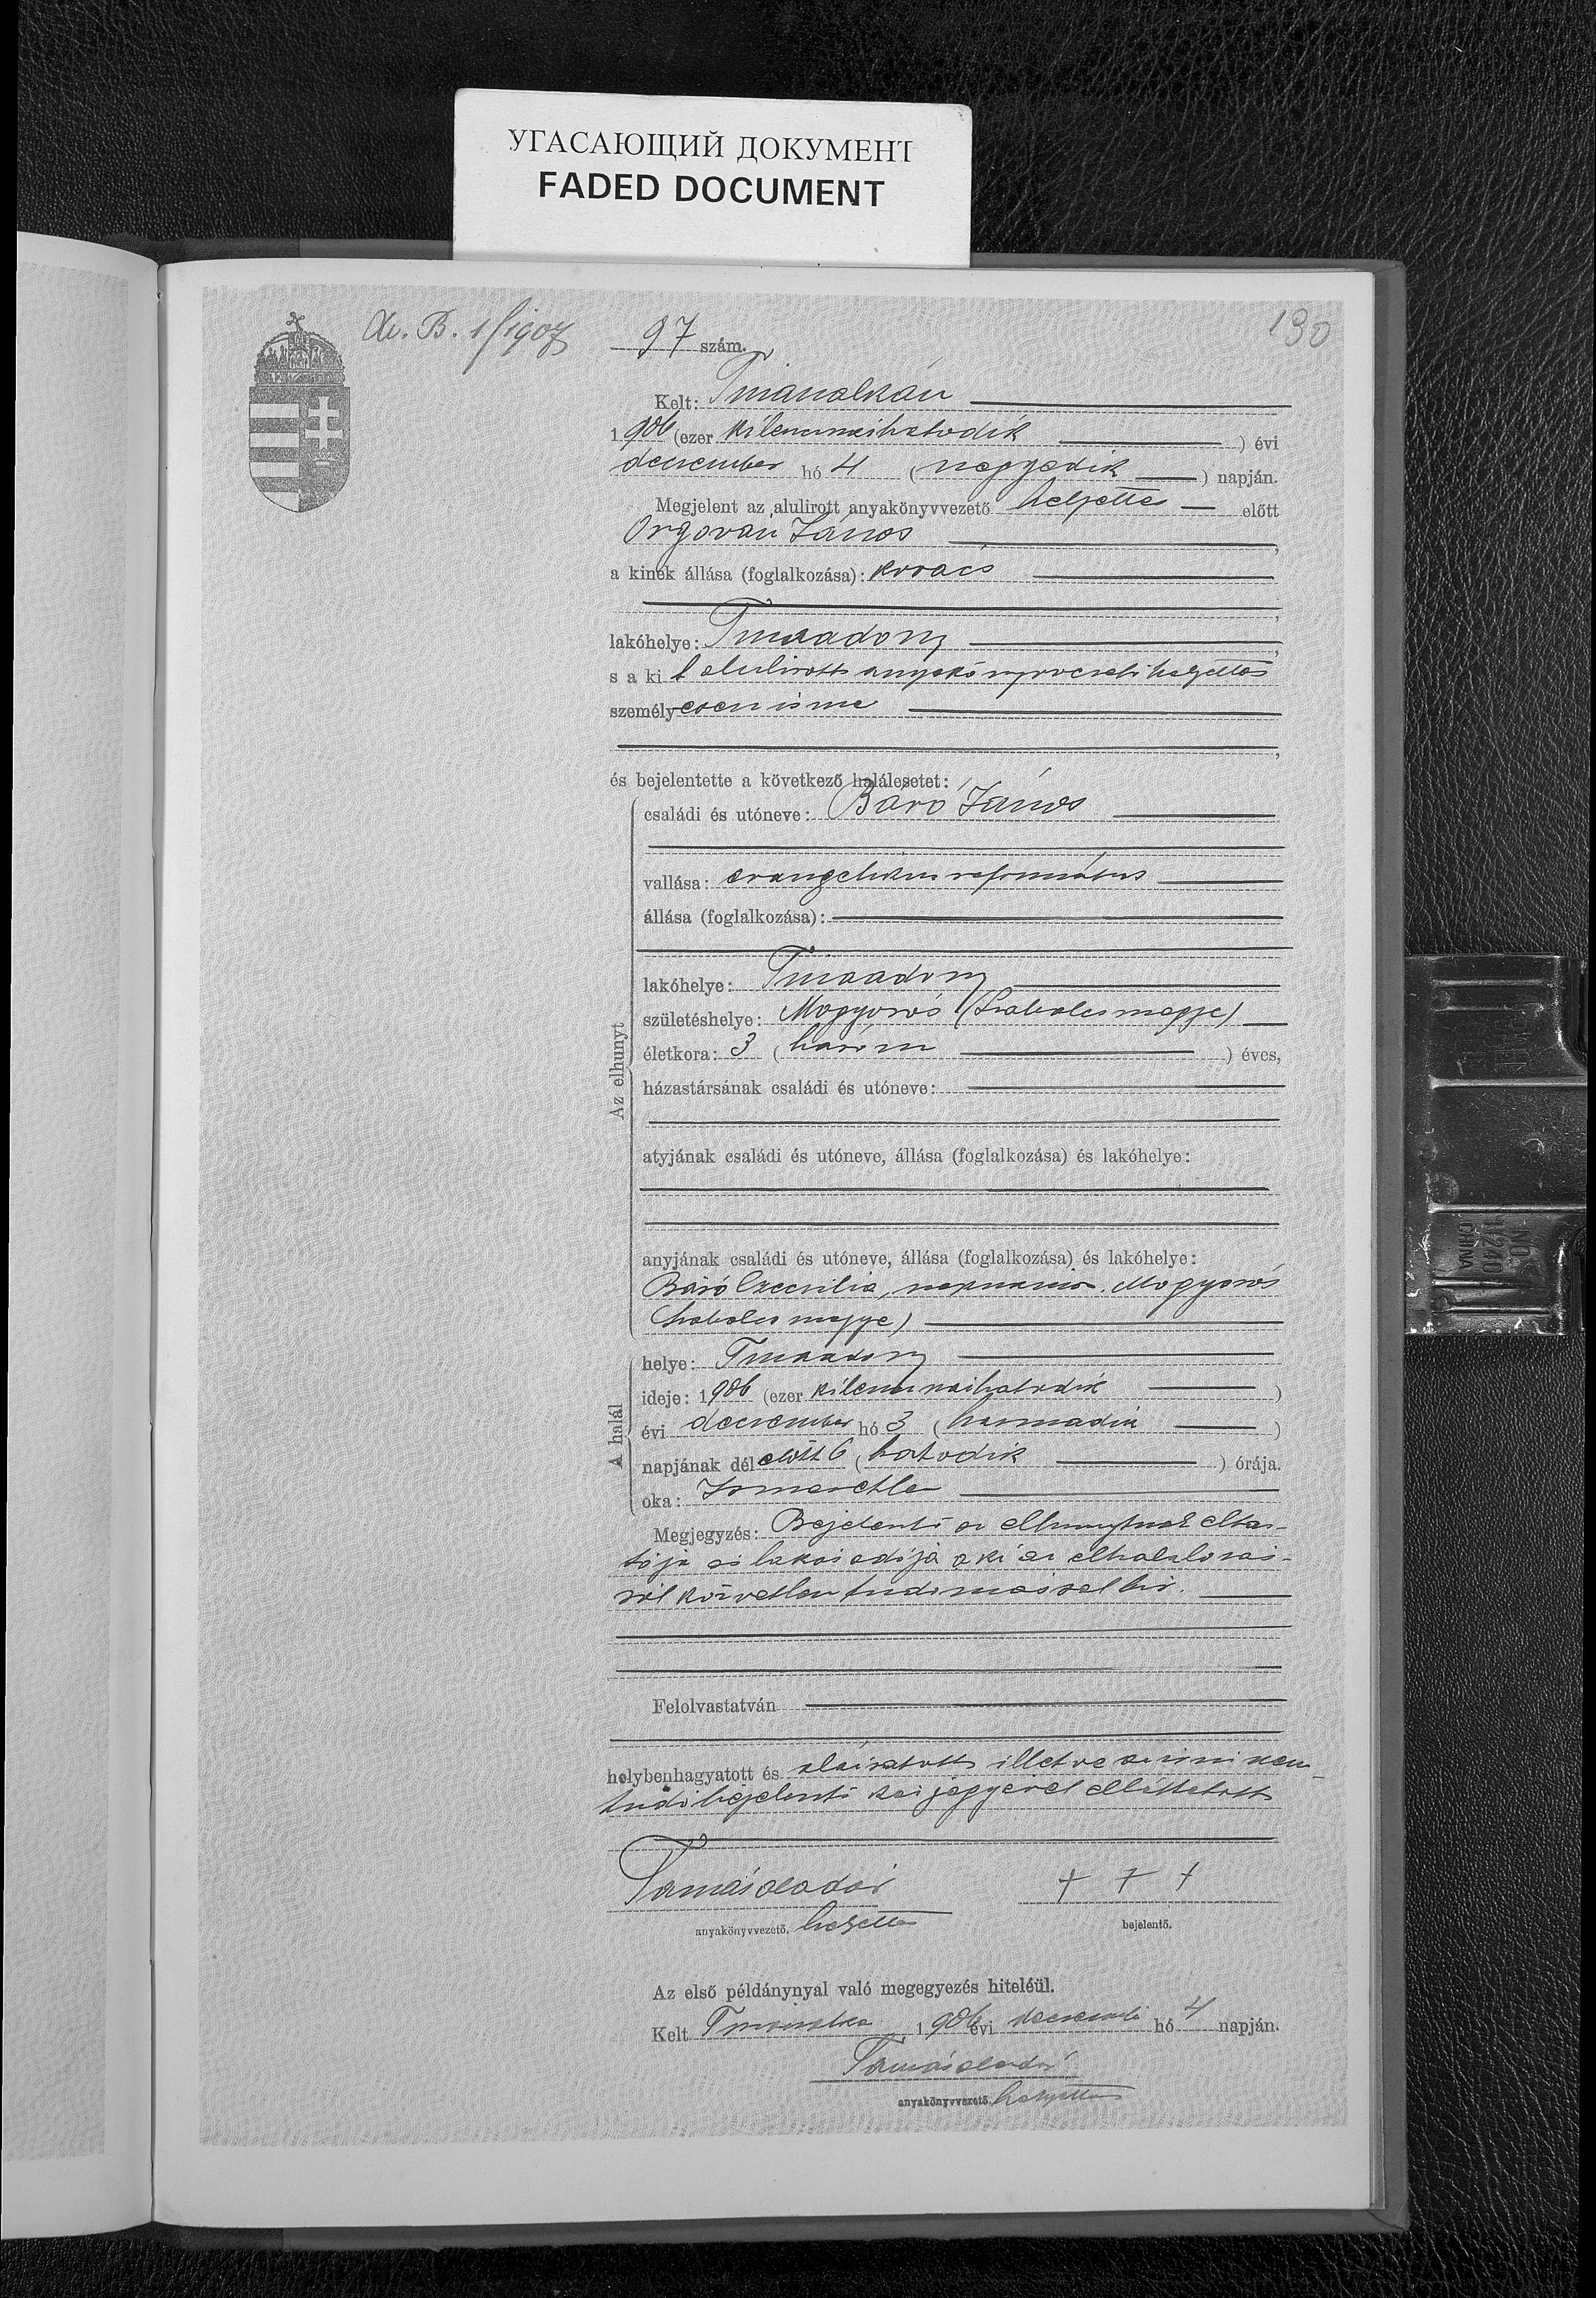 УГАСАЮЩИЙ ДОКУМЕНТ
FADED DOCUMENT
B. 1/1907
97 szám.
190
Kelt:
1 906 (ezer kilencszázhatodik ) évi
december hó 4 ( negyedik ) napján.
Megjelent az alulirott anyakönyvvezető helyettes előtt
Orgován János ,
a kinek állása (foglalkozása): kovács
,
lakóhelye: Tiszaadony ,
s a ki t alulirott anyakönyvvezető helyettes
személyesen isme
,
és bejelentette a következő halálesetet:
Az elhunyt
családi és utóneve: Báró János
vallása: evangelikus református
állása (foglalkozása):
lakóhelye: Tiszaadony
születéshelye: Mogyorós (Szabolcs megye)
életkora: 3 ( három ) éves,
házastársának családi és utóneve:
atyjának családi és utóneve, állása (foglalkozása) és lakóhelye:
anyjának családi és utóneve, állása (foglalkozása) és lakóhelye:
Báró Czeczilia, napszámos, Mogyorós
Szabolcs megye)
A halál
helye: Tiszaadony
ideje: 1 906 (ezer kilencszázhatodik )
évi december hó 3 ( harmadik )
napjának dél előtt 6 ( hatodik ) órája.
oka: Ismeretlen
Megjegyzés: Bejelentő az elhunytnak eltar-
tója és lakásadója a ki az elhalálozás-
ról közvetlen tudomással bir.
Felolvastatván
helybenhagyatott és aláiratott illetve az irni nem
tudó bejelentő kézjegyével elláttatott
Tamás Aladár + + +
anyakönyvvezető. helyettes bejelentő.
Az első példánynyal való megegyezés hiteléül.
Kelt 1 906 évi december hó 4 napján.
Tamás Aladár
anyakönyvvezető. helyettes
NO
11240
CHINA